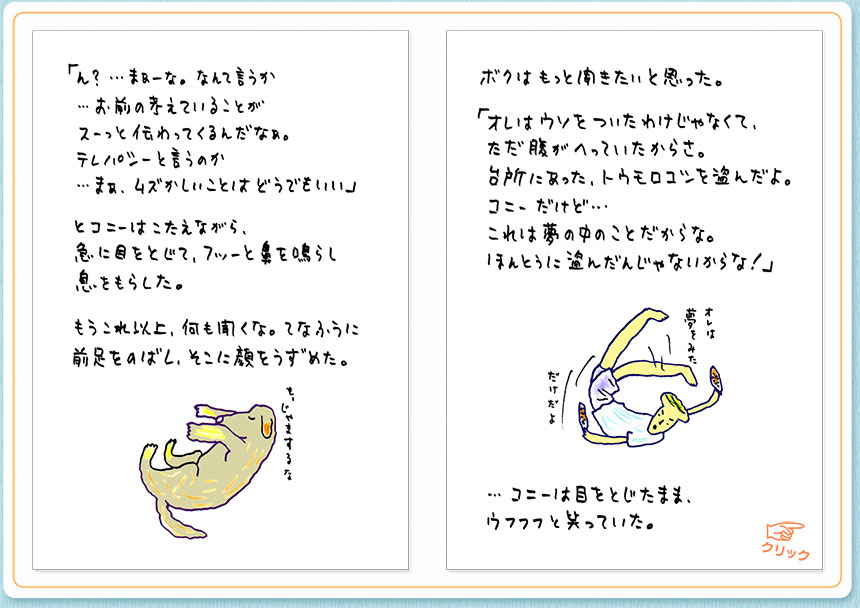 「ん？…まぁーな。なんて言うか
…お前の考えていることが
スーっと伝わってくるんだなぁ。
テレパシーと言うのか
…まぁ、ムズかしいことはどうでもいい」
とコニーはこたえながら、
急に目をとじて、フッーと鼻を鳴らし
息をもらした。
もうこれ以上、何も聞くな。てなふうに
前足をのばし、そこに顔をうずめた。
も、じゃまするな
ボクはもっと聞きたいと思った。
「オレはウソをついたわけじゃなくて、
ただ腹がへっていたからさ。
台所にあった、トウモロコシを盗んだよ。
コニーだけど…
これは夢の中のことだからな。
ほんとうに盗んだんじゃないからな！」
オレは
夢をみた
だけだよ
…コニーは目をとじたまま、
ウフフフと笑っていた。
クリック